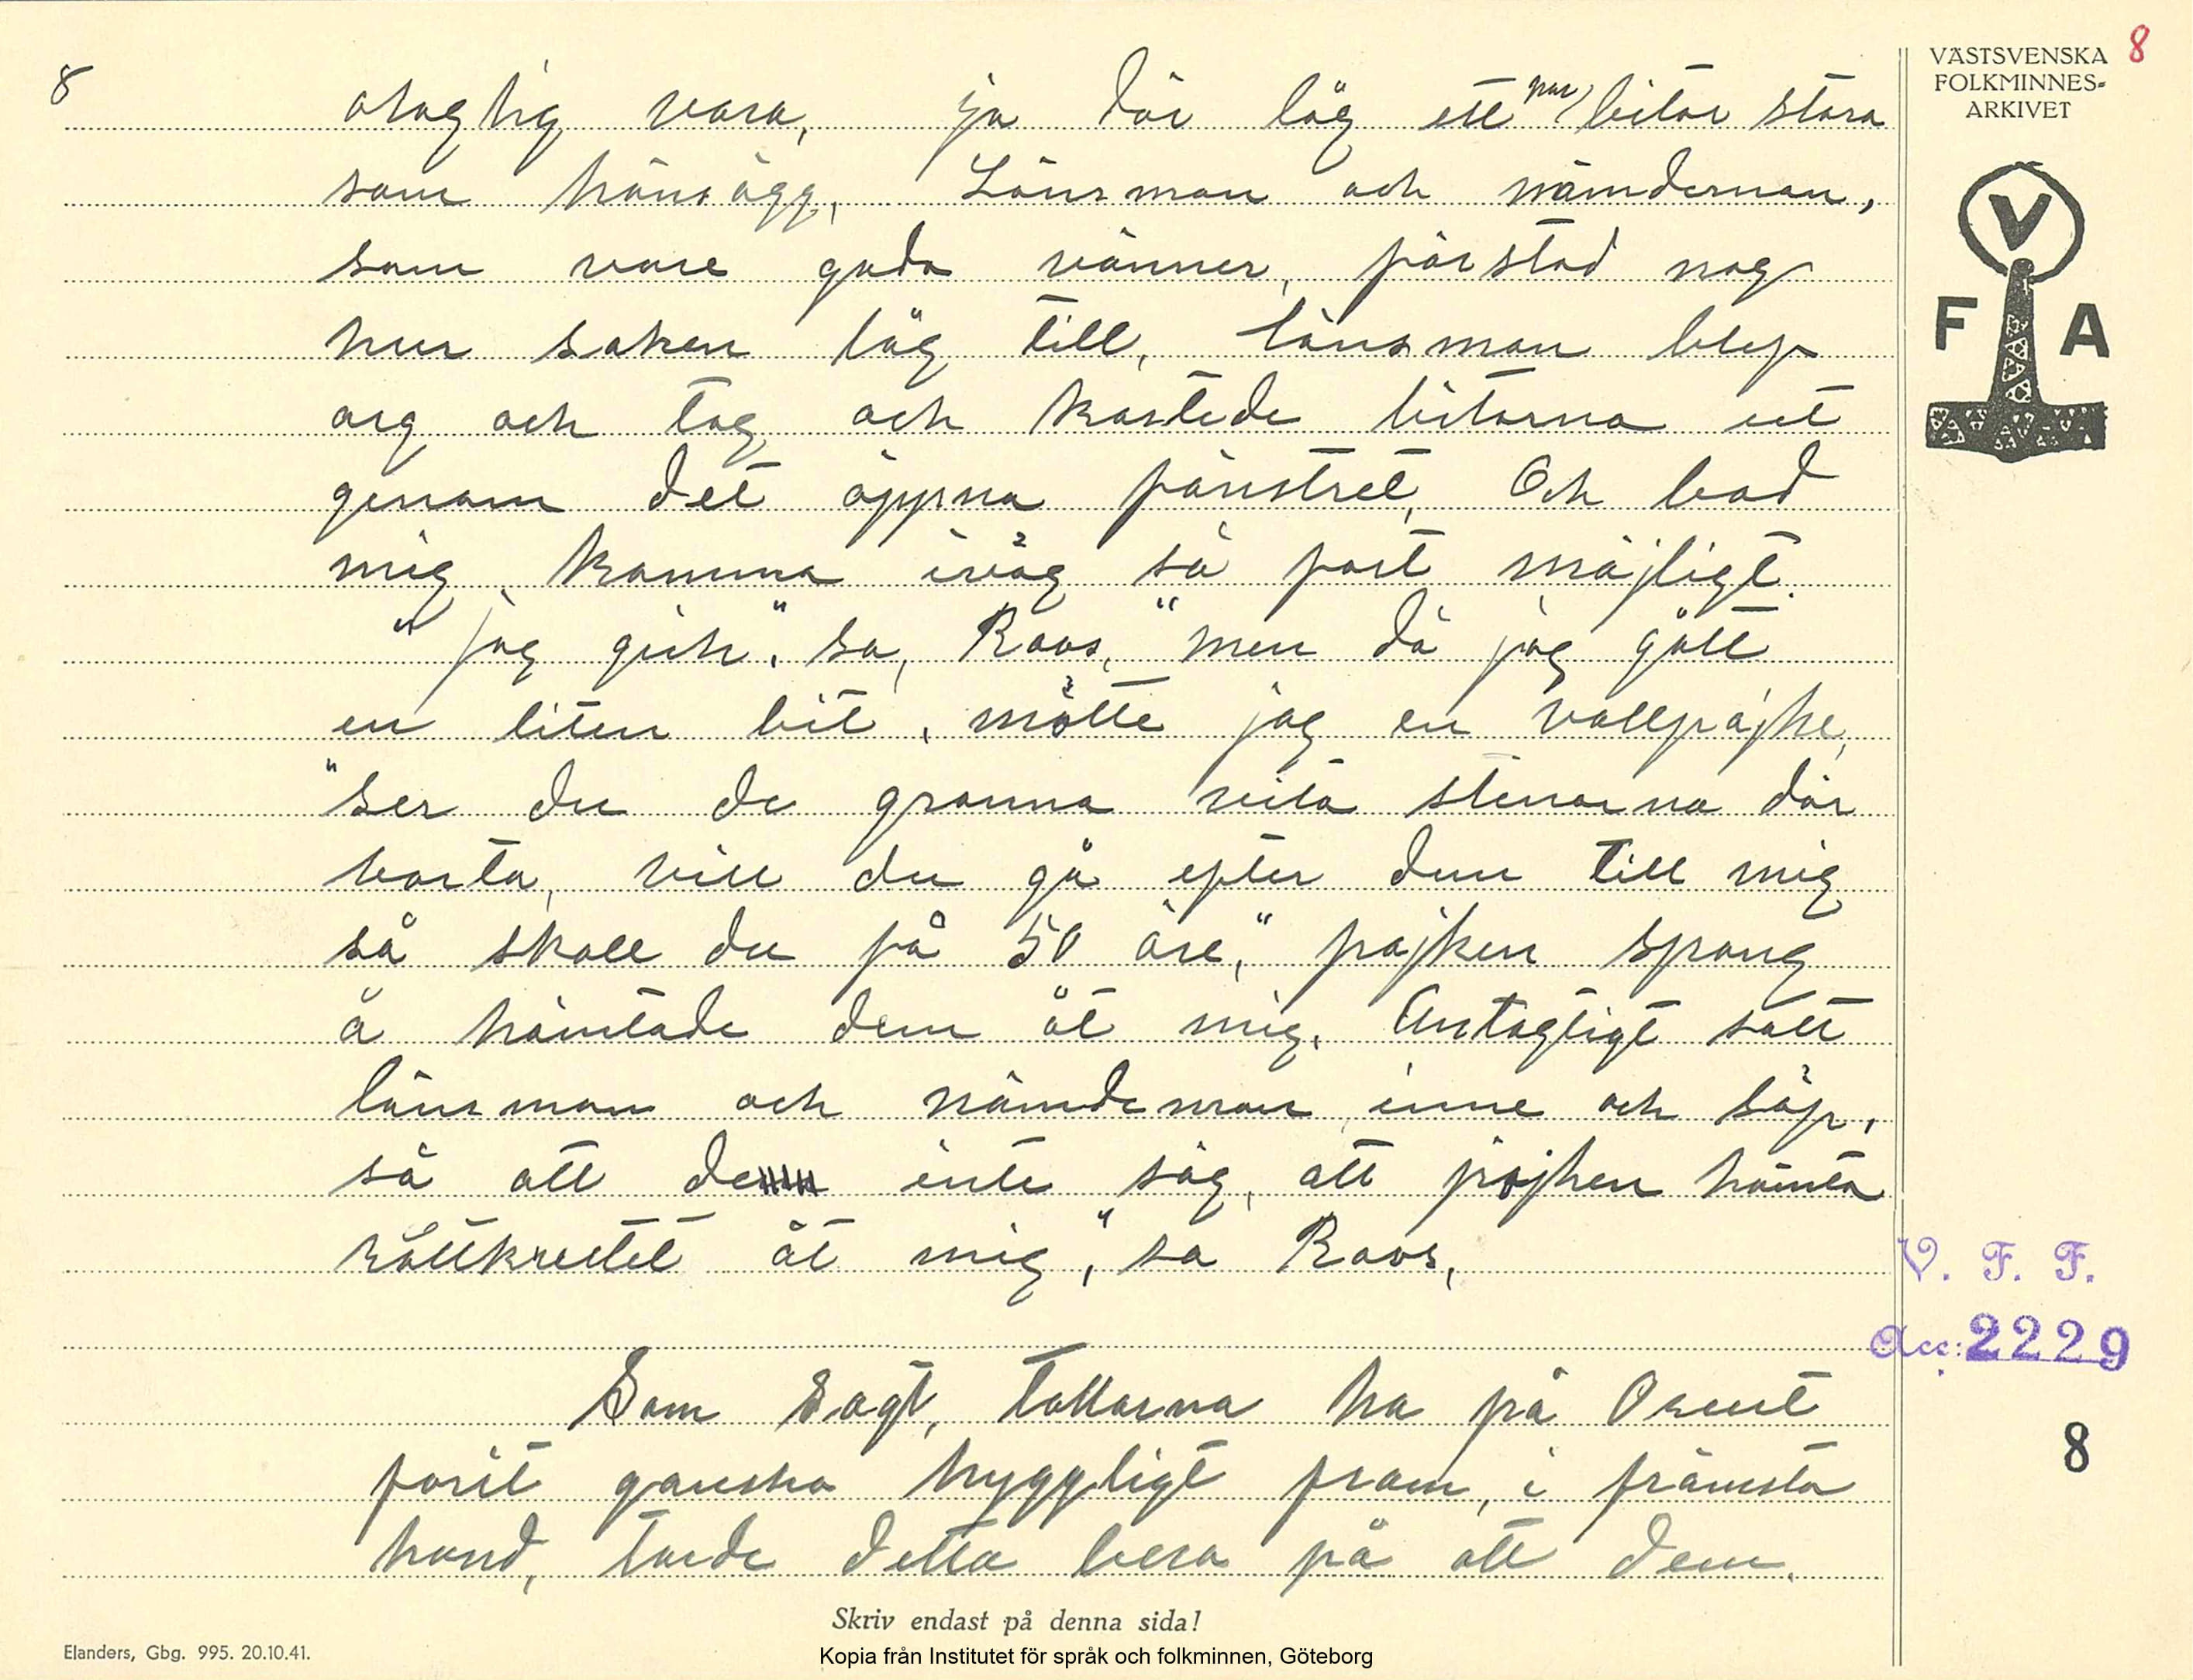 8
VÄSTSVENSKA 8
FOLKMINNES-
ARKIVET
V
F A
olaglig vara, ja där låg ett par bitar stora
som hönsägg, Länsman och nämndeman,
som vare goda vänner, förstod nog
hur saken låg till, länsman blef
arg och tog och kastede bitarna ut
genom det öppna fönstret, Och bad
mig komma iväg så fort möjligt.
"jag gick," sa, Roos, "men då jag gått
en liten bit, mötte jag en vallpåjke,
"ser du de granna vita stenarna där
borta, vill du gå efter dem till mig
så skall du få 50 öre," pojken sprang
å hämtade dem åt mig. Antagligt satt
länsman och nämndeman inne och söp,
så att de inte såg, att pojken hämta
råttkrutet åt mig," sa Roos,
Som sagt, tattarna ha på Orust
farit ganska hyggligt fram, i främsta
hand, torde detta bero på att dem.
V. F. F.
Acc: 2229
8
Skriv endast på denna sida!
Elanders, Gbg. 995. 20.10.41.
Kopia från Institutet för språk och folkminnen, Göteborg